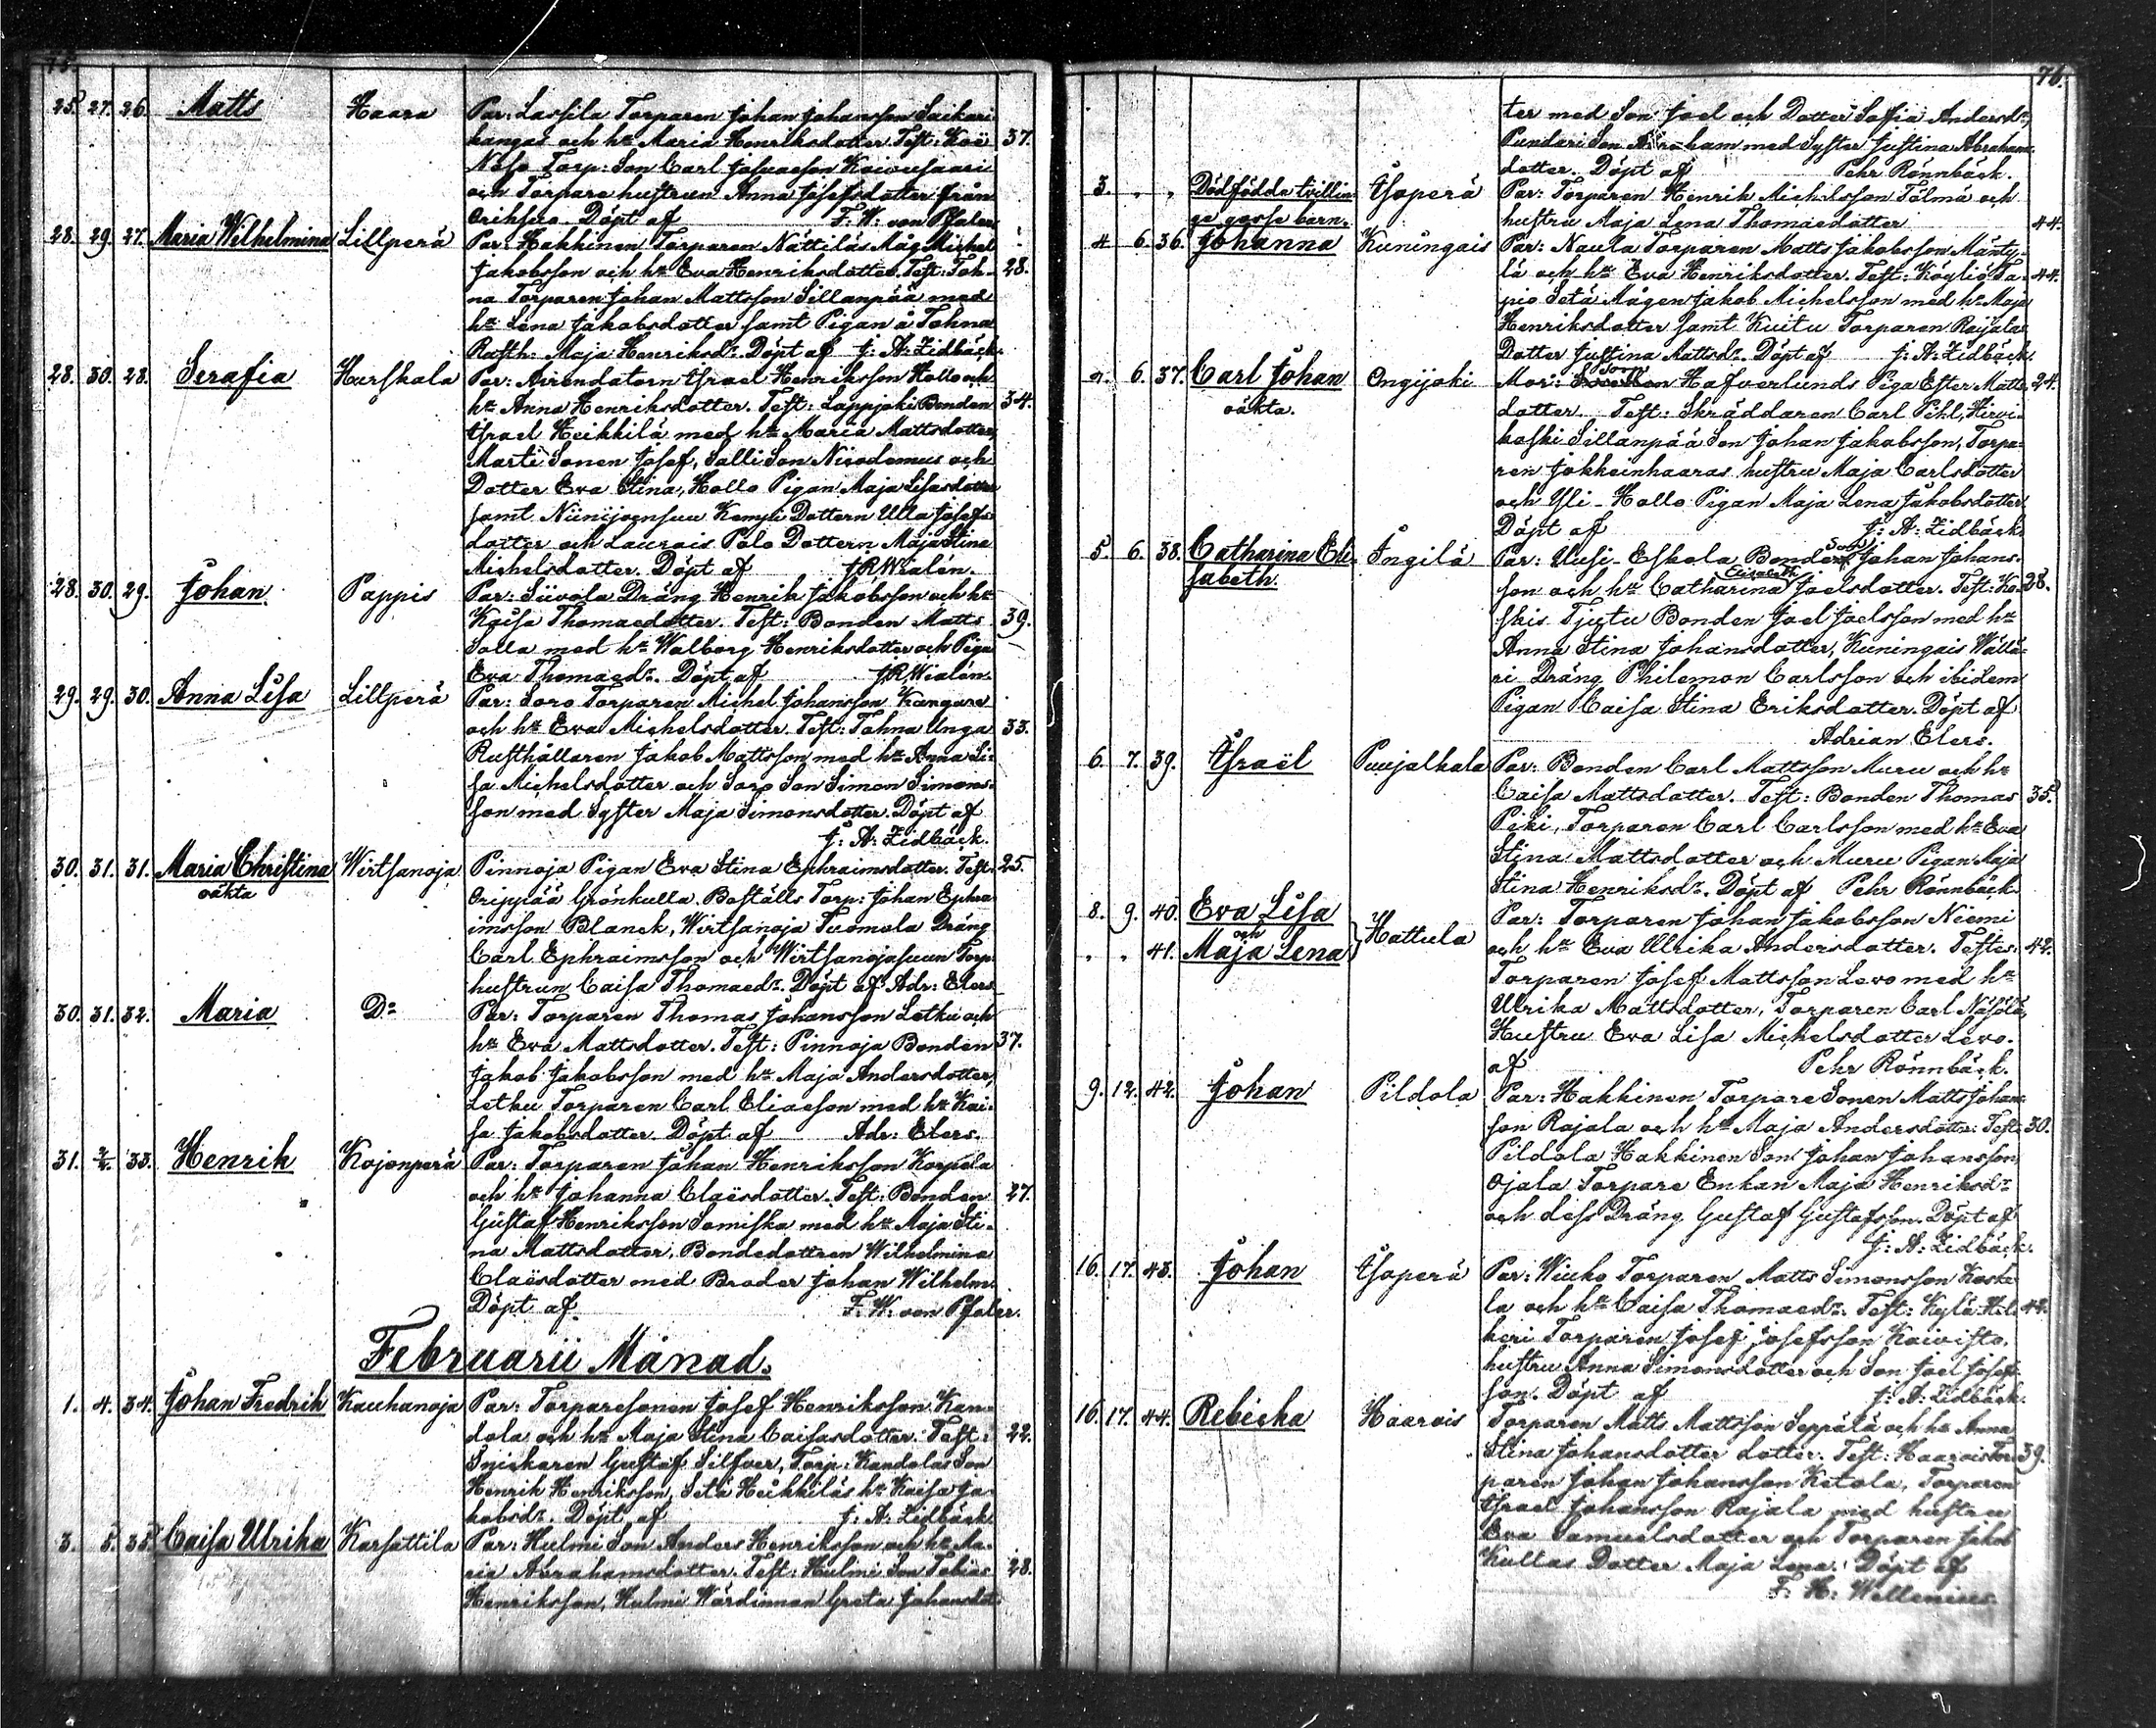 75.
25. 27. 26. Matts Haara Par: Lassila Torparen Johan Johansson Suikari 37.
kangas och hu Maria Henriksdotter. Test:
Torp: Son Carl Josuasson Koivusaari
och Torpare hustrun Anna Josefsdotter från
Döpt af F. W. von Pfaler
28. 29. 27. Maria Wilhelmina Lillperä Par: Hakkinen Torparen Nättiläs Måg Michel
Jakobsson och hu Eva Henriksdotter. Test: Toh- 28.
na Torparen Johan Mattsson Sillanpää med
hu Lena Jakobsdotter samt Pigan å Tohna
Rusth: Maja Henriksdr. Döpt af J: A: Lidbäck.
28. 30. 28. Serafia Hurskala Par: Arrendatorn Israel Henriksson Hollo och
hu Anna Henriksdotter. Test: Lappjoki Bonden 34.
Israel Heikkilä med hu Maria Mattsdotter,
Marti Sonen Josef, Salli Son Nicodemus och
Dotter Eva Stina, Hollo Pigan Maja Lisa
samt Niinijoensuu Kemppi Dottern Ulla Josefs-
dotter och Laurois Palo Dottern Maja Stina
Michelsdotter. Döpt af J R Wialén.
28. 30. 29. Johan Pappis Par: Siivola Dräng Henrik Jakobsson och hu
Kaisa Thomasdotter. Test: Bonden Matts 39.
Salla med hu Walborg Henriksdotter och Piga
Eva Thomasdr. Döpt af J R Wialén.
29. 29. 30. Anna Lisa Lillperä Par: Soro Torparen Michel Johansson Kangare
och hu Eva Michelsdotter. Test: Tohna Unga 33.
Rusthållaren Jakob Mattsson med hu Anna Li-
sa Michelsdotter och Soro Son Simon Simons-
son med Syster Maja Simonsdotter. Döpt af
J: A: Lidbäck.
30. 31. 31. Maria Christina Wirtsanoja Pinnoja Pigan Eva Stina Ephraimsdotter. Test: 25.
oäkta Oripää Grönkulla Boställs Torp: Johan Ephra-
imsson Blanck, Wirtsanoja Tuomola Dräng
Carl Ephraimsson och Wirtsanojasuun Torp:
hustrun Caisa Thomasdr. Döpt af Adr: Elers
30. 31. 32. Maria Do Par: Torparen Thomas Johansson Letku och
hu Eva Mattsdotter. Test: Pinnoja Bonden 37.
Jakob Jakobsson med hu Maja Andersdotter,
Letku Torparen Carl Eliasson med hu Kai-
sa Jakobsdotter. Döpt af Adr: Elers.
31. 2/2. 33. Henrik Kojonperä Par: Torparen Johan Henriksson Korpela
och hu Johanna Claësdotter. Test: Bonden 27.
Gustaf Henriksson Samiska med hu Maja Sti-
na Mattsdotter, Bondedottren Wilhelmina
Claësdotter med Broder Johan Wilhelm.
Döpt af F. W. von Pfaler.
Februarii Månad.
1. 4. 34. Johan Fredrik Kauhanoja Par: Torparesonen Josef Henriksson Kan-
dola och hu Maja Stina Caisasdotter. Test: 22.
Snickaren Gustaf Silfver, Torp: Kandolas Son
Henrik Henriksson, Setä Heikkiläs hu Kaisa Ja-
kobsdr. Döpt af J: A: Lidbäck
3. 5. 35. Caisa Ulrika Karsattila Par: Hulmi Son Anders Henriksson och hu Ma-
ria Abrahamsdotter. Test: Hulmi Son Tobias 28.
Henriksson, Hulmi Wärdinnan Greta Johansdot-
76.
ter med Son Joel och Dotter Sofia Andersdr,
Pundari Son Abraham med Syster Justina Abrahams-
dotter. Döpt af Pehr Rönnbäck.
3. " " Dödfödda tvillin- Isoperä Par: Torparen Henrik Michelsson Tölmä och
ge gosse barn. hustru Maja Lena Thomasdotter 44.
4 6. 36. Johanna Kuningais Par: Naula Torparen Matts Jakobsson Mänty-
lä och hu Eva Henriksdotter. Test: Kögliö Ta- 44.
pio Setä Mågen Jakob Michelsson med hu Maja
Henriksdotter samt Kuitu Torparen Raijala
Dotter Justina Mattsdr. Döpt af J: A: Lidbäck.
6. 37. Carl Johan Ongijoki Mor: Hafverlunds Piga Ester Matts- 24.
oäkta. dotter. Test: Skräddaren Carl Pihl, Hirvi-
koski Sillanpää Son Johan Jakobsson, Torpa-
ren Jokkeinhaaras hustru Maja Carlsdotter
och Yli-Hollo Pigan Maja Lena Jakobsdotter
Döpt af J: A: Lidbäck
5. 6. 38. Catharina Eli- Ingilä Par: Uusi-Eskola Bonden Son Johan Johans-
sabeth. son och hu Catharina Elisabeth Joelsdotter. Test: Ko- 28.
skis Tjutu Bonden Joel Joelsson med hu
Anna Stina Johansdotter, Kuningais Wälä-
ri Dräng Philemon Carlsson och ibidem
Pigan Caisa Stina Eriksdotter. Döpt af
Adrian Elers.
6. 7. 39. Israël Puujalkala Par: Bonden Carl Mattsson Muru och hu
Caisa Mattsdotter. Test: Bonden Thomas 35.
Piki, Torparen Carl Carlsson med hu Eva
Stina Mattsdotter och Muru Pigan Maja
Stina Henriksdr. Döpt af Pehr Rönnbäck
8. 9. 40. Eva Lisa Hattula Par: Torparen Johan Jakobsson Niemi
och
" " 41. Maja Lena och hu Eva Ulrika Andersdotter. Testes: 42.
Torparen Josef Mattsson Levo med hu
Ulrika Mattsdotter, Torparen Carl
Hustru Eva Lisa Michelsdotter Levo.
af Pehr Rönnbäck.
9. 12. 42. Johan Pildola Par: Hakkinen Torpare Sonen Matts Johans-
son Rajala och hu Maja Andersdotter: Test: 30.
Pildola Hakkinen Son Johan Johansson,
Ojala Torpare Enkan Maja Henriksdr
och dess Dräng Gustaf Gustafsson. Döpt af
J: A: Lidbäck.
16. 17. 43. Johan Isoperä Par: Wiuko Torparen Matts Simonsson Koske-
la och hu Caisa Thomasdr. Test: Kylä 42.
Torparen Josef Josefsson Koivisto,
hustru Anna Simonsdotter och Son Joel Josef-
son. Döpt af J: A: Lidbäck.
16. 17. 44. Rebecka Haarois Torparen Matts Mattsson Seppälä och hu Anna
Stina Johansdotter dotter. Test: Haarois Tor- 39.
paren Johan Johansson Ketola, Torparen
Israel Johansson Rajala med hustru
Eva Samuelsdotter och Torparen Jakob
Kultas Dotter Maja Lena. Döpt af
F. H: Wellenius.